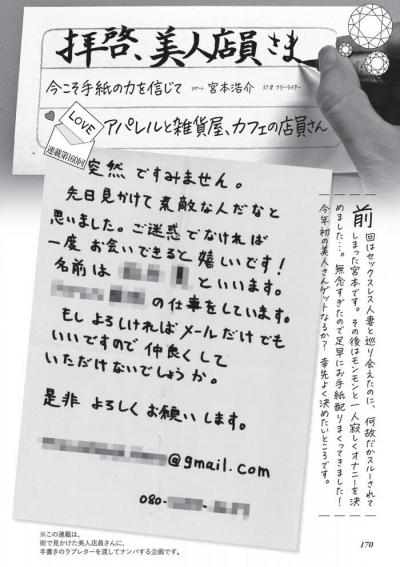 拝啓、美人店員さま
今こそ手紙の力を信じて リポート 宮本浩介 37才 フリーライター
LOVE
連載第160回
アパレルと雑貨屋、カフェの店員さん
突然ですみません。
先日見かけて素敵な人だなと
思いました。ご迷惑でなければ
一度お会いできると嬉しいです!
名前は といいます。
の仕事をしています。
もしよろしければメールだけでも
いいですので仲良くして
いただけないでしょうか。
是非よろしくお願いします。
@gmail.com
080-
前回はセックスレス人妻と巡り会えたのに、何故だかスルーされて
しまった宮本です。その後はモンモンと一人寂しくオナニーを決
めました…。無念すぎたので足早にお手紙配りまくってきました!
今年初の美人さんゲットなるか? 幸先よく決めたいところです。
※この連載は、
街で見かけた美人店員さんに、
手書きのラブレターを渡してナンパする企画です。
170